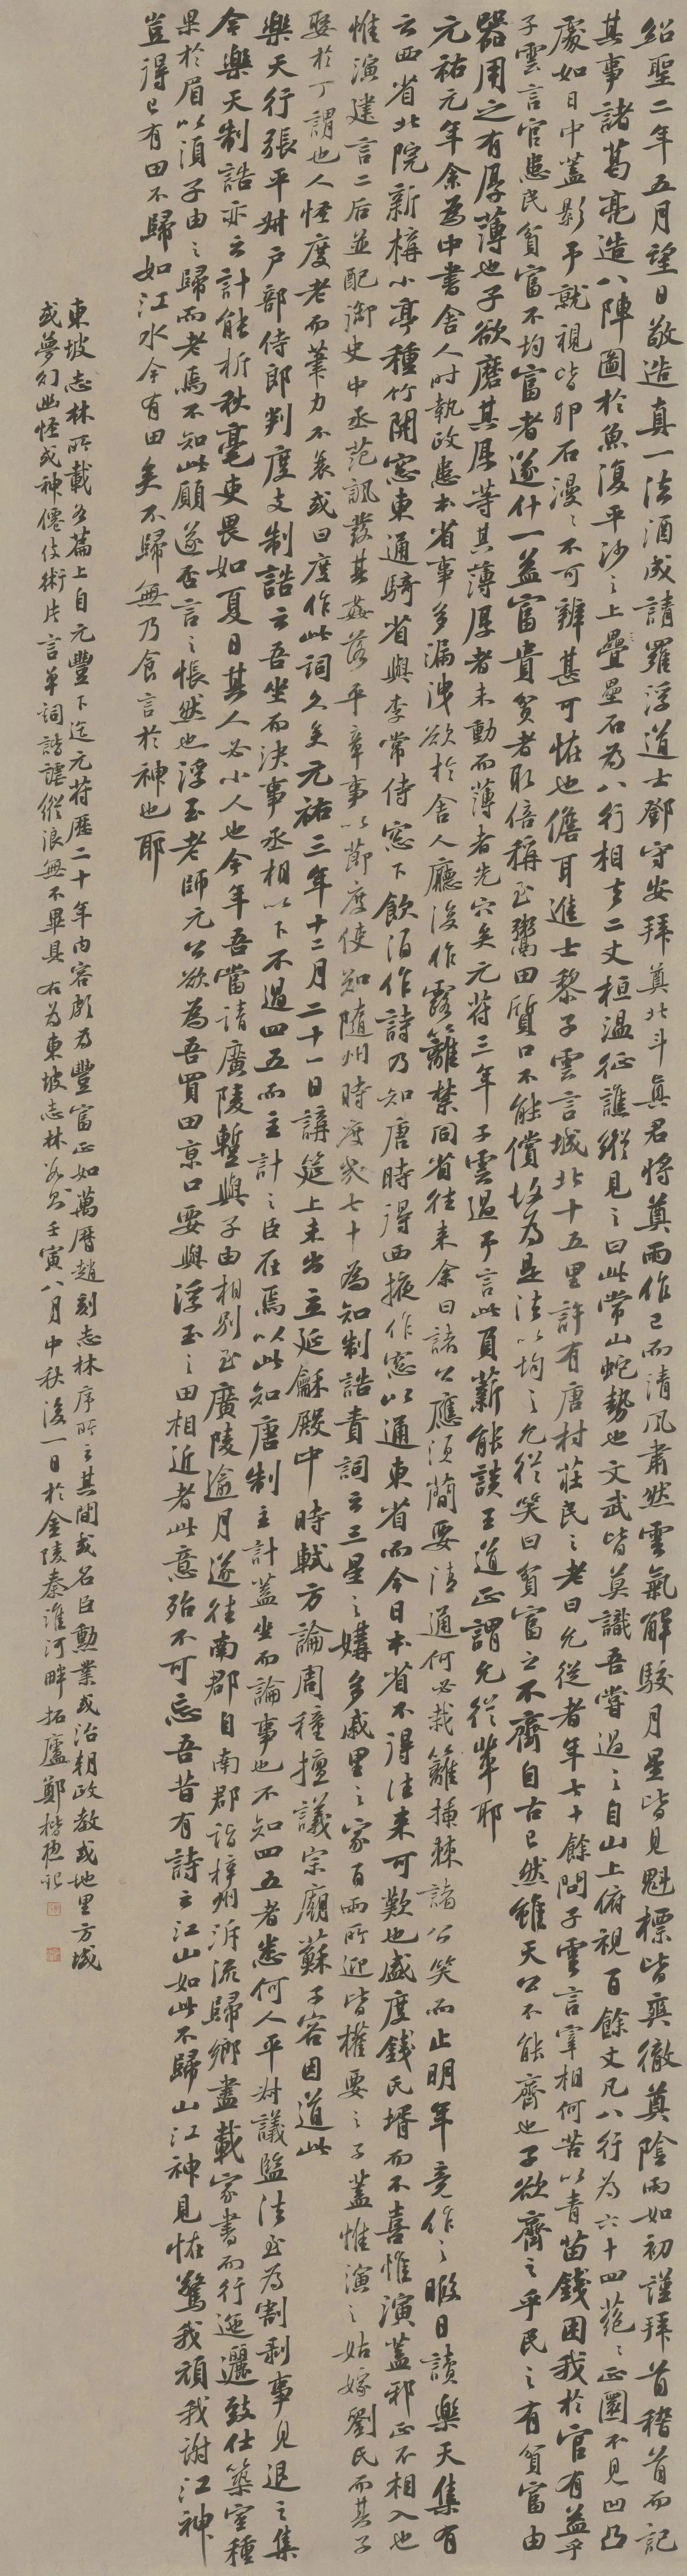 紹聖二年五月望日敬造真一法酒成請羅浮道士鄧守安拜奠北斗真君將奠雨作已而清風肅然雲氣解駁月星皆見魁標皆爽徹奠陰雨如初謹拜首稽首而記
其事諸葛亮造八陣圖於魚復平沙之上壘石為八行相去二丈桓溫征譙縱見之曰此常山蛇勢也文武皆莫識吾嘗過之自山上俯視百餘丈凡八行為六十四蕝蕝正圜不見凹凸
處如日中蓋影予就視皆卵石漫漫不可辨甚可怪也儋耳進士黎子雲言城北十五里許有唐村莊民之老曰允從者年七十餘問子雲言宰相何苦以青苗錢困我於官有益乎
子雲言官患民貧富不均富者逐什一益富貴貧者取倍稱至鬻田質口不能償故為是法以均之允從笑曰貧富之不齊自古已然雖天公不能齊也子欲齊之乎民之有貧富由
器用之有厚薄也子欲磨其厚等其薄厚者未動而薄者先穴矣元符三年子雲過予言此負薪能談王道正謂允從輩耶
元祐元年余為中書舍人時執政患本省事多漏洩欲於舍人廳後作露籬禁同省往來余曰諸公應須簡要清通何必栽籬插棘諸公笑而止明年竟作之暇日讀樂天集有
云西省北院新構小亭種竹開窗東通騎省與李常侍窗下飲酒作詩乃知唐時得西掖作窗以通東省而今日本省不得往來可歎也盛度錢氏壻而不喜惟演蓋邪正不相入也
惟演建言二后並配御史中丞范諷發其姦落平章事以節度使知隨州時度幾七十為知制誥責詞云三星之媾多戚里之家百兩所迎皆權要之子蓋惟演之姑嫁劉氏而其子
娶於丁謂也人怪度老而筆力不衰或曰度作此詞久矣元祐三年十二月二十一日講筵上未出立延龢殿中時軾方論周穜擅議宗廟蘇子容因道此
樂天行張平叔戶部侍郎判度支制誥云吾坐而決事丞相以下不過四五而主計之臣在焉以此知唐制主計蓋坐而論事也不知四五者悉何人平叔議鹽法至為割剝事見退之集
今樂天制誥亦云計能析秋毫吏畏如夏日其人必小人也今年吾當請廣陵蹔與子由相別至廣陵逾月遂往南郡自南郡詣梓州泝流歸鄉盡載家書而行迤邐致仕築室種
果於眉以須子由之歸而老焉不知此願遂否言之悵然也浮玉老師元公欲為吾買田京口要與浮玉之田相近者此意殆不可忘吾昔有詩云江山如此不歸山江神見怪驚我頑我謝江神
豈得已有田不歸如江水今有田矣不歸無乃食言於神也耶
東坡志林所載各篇上自元豐下迄元符歷二十年內容頗為豐富正如萬曆趙刻志林序所云其間或名臣勳業或治朝政教或地里方域
或夢幻幽怪或神僊伎術片言單詞諧謔縱浪無不畢具右為東坡志林如是壬寅八月中秋後一日於金陵秦淮河畔拓廬鄭楷德記